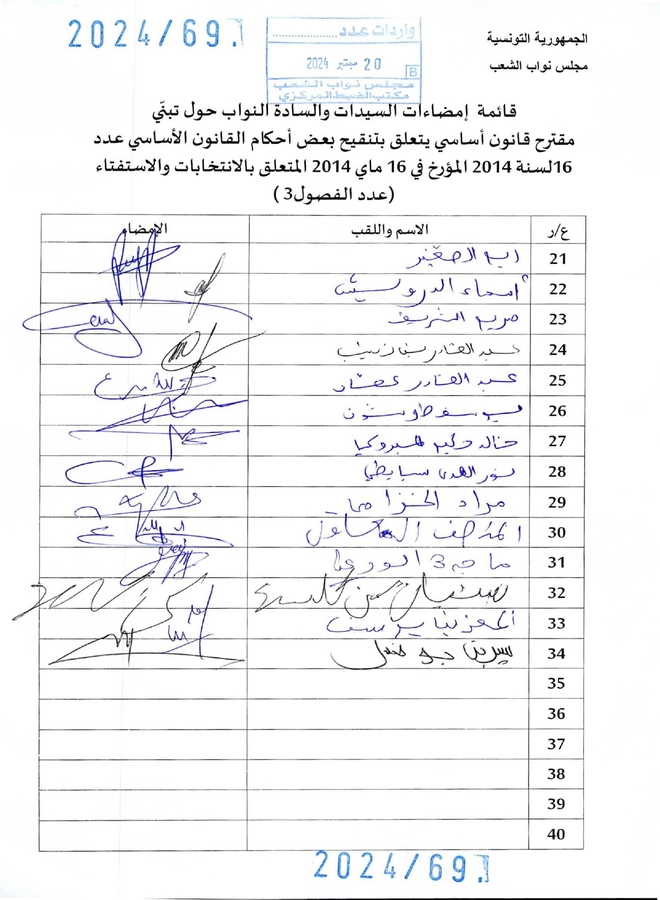 2024/69.
واردات عدد
20 سبتمبر 2024
B
مجلس نواب الشعب
مكتب الضبط المركزي
الجمهورية التونسية
مجلس نواب الشعب
قائمة إمضاءات السيدات والسادة النواب حول تبنّي
مقترح قانون أساسي يتعلق بتنقيح بعض أحكام القانون الأساسي عدد
16 لسنة 2014 المؤرخ في 16 ماي 2014 المتعلق بالانتخابات والاستفتاء
(عدد الفصول3 )
ع/ر الاسم واللقب الإمضاء
21
22 أسماء الدرويش
23 مريم الشريف
24 عبد القادر
25 عبد القادر عمار
26
27 خالد حكيم المبروكي
28 نور الهدى سبايطي
29 مراد الخزامي
30 المنصف المعلول
31 ماجدة الورغي
32
33 المعز بن يوسف
34
35
36
37
38
39
40
2024/69.